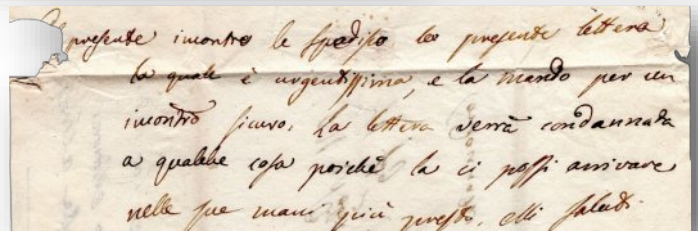 presente incontro le spedisco la presente lettera
la quale è urgentissima, e la mando per un
incontro sicuro. La lettera verrà condannata
a qualche cosa poichè la ci possi arrivare
nelle sue mani più presto. Mi saluti